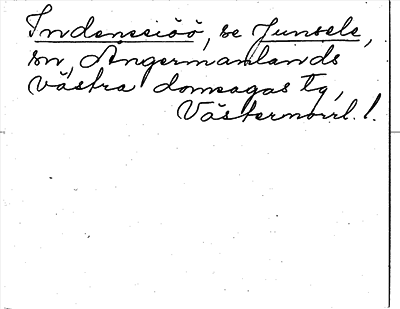 Indenssiöö, se Junsele,
sn, Ångermanlands
västra domsagas tg,
Västernorrl. l.